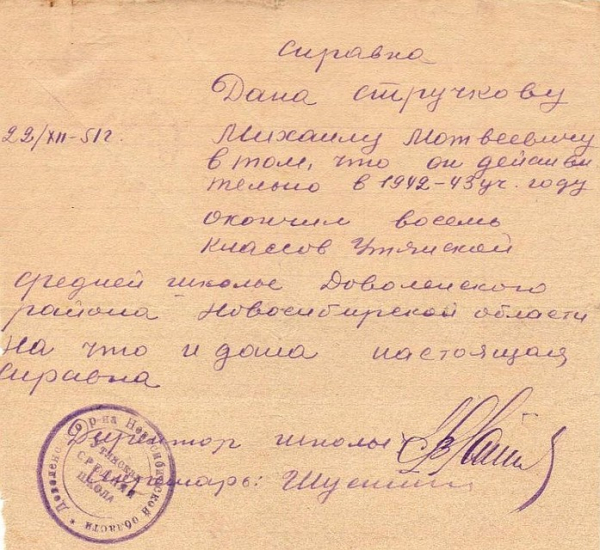 Справка
Дана Стручкову
22/XII-51г.
Михаилу Матвеевичу
в том, что он действи
тельно в 1942-43 уч. году
окончил восемь
классов Утянской
средней школы Доволенского
района Новосибирской области
На что и дана настоящая
справка
Директор школы:
Секретарь:
Утянская
СРЕДНЯЯ
ШКОЛА
р-на Новосибирской области